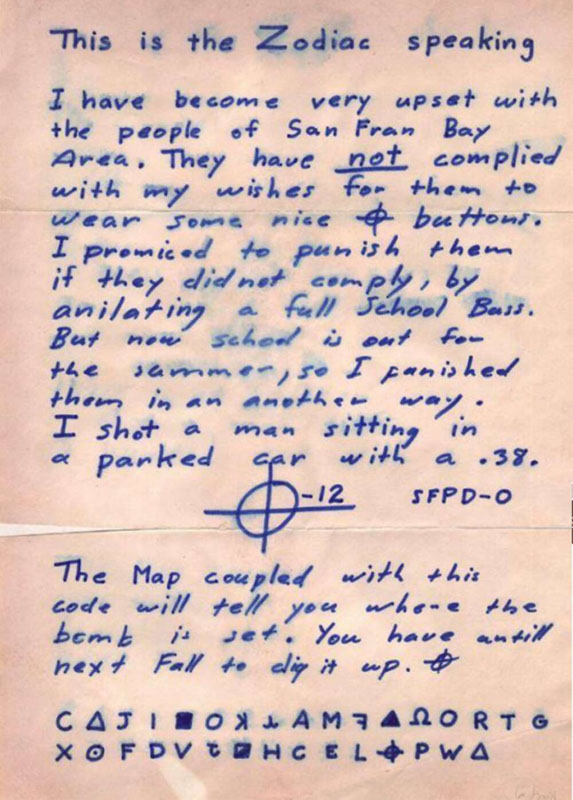 This is the Zodiac speaking
I have become very upset with
the people of San Fran Bay
Area. They have not complied
with my wishes for them to
wear some nice ⌖ buttons.
I promiced to punish them
if they did not comply, by
anilating a full School Buss.
But now school is out for
the summer, so I punished
them in an another way.
I shot a man sitting in
a parked car with a .38.
⌖-12 SFPD-0
The Map coupled with this
code will tell you where the
bomb is set. You have untill
next Fall to dig it up. ⌖
C Δ J I ■ O ꓘ ⅄ A M ꟻ ▲ Ω O R T G
X ⊙ F D V Ɛ ◪ H C E L ⌖ P W Δ